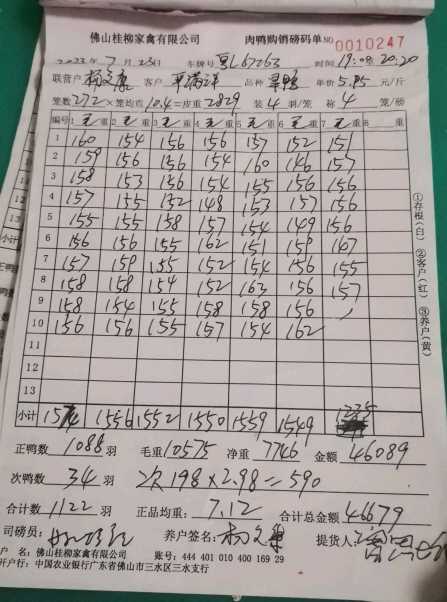 佛山桂柳家禽有限公司 肉鸭购销磅码单 NO 0010247
2023年7月23日 车牌号 粤L67063 时间 19:08 20:20
联营户 客户 品种 单价 5.95 元/斤
笼数 272 × 笼均重 10.4 = 皮重 2829 装 4 羽/笼 称 4 笼/磅
编号 1 毛 重 2 毛 重 3 毛 重 4 毛 重 5 毛 重 6 毛 重 7 毛 重 8 重
1 160 154 156 156 157 152 151
2 159 156 156 154 160 146 157
3 158 153 156 154 155 156 156
4 157 155 132 148 153 157 156
5 155 155 158 157 154 149 156
6 156 156 155 162 151 159 147
7 157 159 155 152 154 156 155
8 158 158 154 152 163 156 157
9 158 154 155 158 158 156
10 156 156 155 157 154 162
11
12
13
小计 1574 1556 1552 1550 1559 1549 1235
正鸭数 1088 羽 毛重 10575 净重 7746 金额 46089
次鸭数 34 羽 次 198×2.98=590
合计数 1122 羽 正品均重: 7.12 合计总金额 46679
司磅员: 养户签名: 提货人:
户 名: 佛山桂柳家禽有限公司 账号: 444 401 010 400 169 29
开户行: 中国农业银行广东省佛山市三水区三水支行
①存根(白) ②客户(红) ③养户(黄)